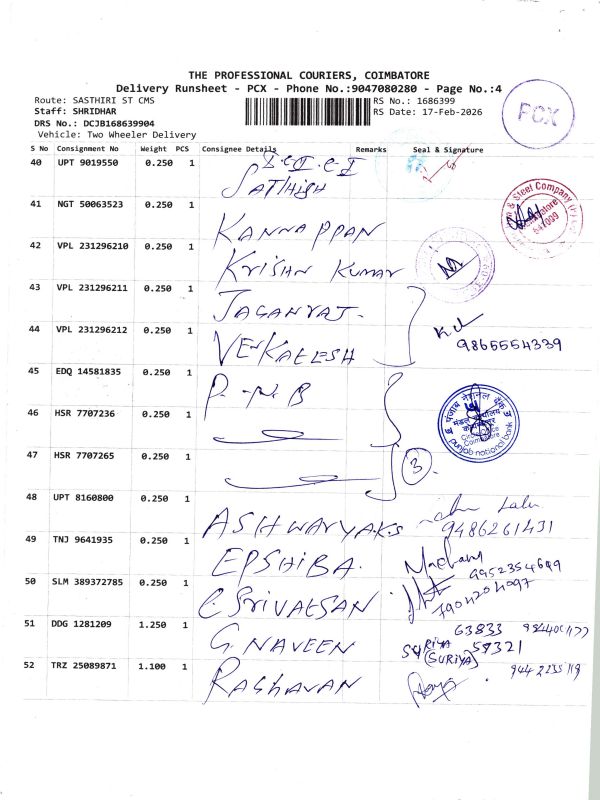 THE PROFESSIONAL COURIERS, COIMBATORE
Delivery Runsheet - PCX - Phone No.:9047080280 - Page No.:4
Route: SASTHIRI ST CMS
RS No.: 1686399
Staff: SHRIDHAR
RS Date: 17-Feb-2026
DRS No.: DCJB168639904
Vehicle: Two Wheeler Delivery
PCX
S No Consignment No Weight PCS Consignee Details Remarks Seal & Signature
40 UPT 9019550 0.250 1 SATHISH
41 NGT 50063523 0.250 1 KANNAPPAN
& Steel Company
Coimbatore
641009
42 VPL 231296210 0.250 1 KRISHN KUMAR
43 VPL 231296211 0.250 1 JAGANRAJ.
44 VPL 231296212 0.250 1 VENKATESH
9865554339
45 EDQ 14581835 0.250 1 P.N.B
46 HSR 7707236 0.250 1
पंजाब नैशनल बैंक
Coimbatore
punjab national bank
47 HSR 7707265 0.250 1
3
48 UPT 8160800 0.250 1 ASHWARYA.K.S
9486261431
49 TNJ 9641935 0.250 1 EPSHIBA.
9952354699
50 SLM 389372785 0.250 1 C.SRIVATSAN
7904204097
51 DDG 1281209 1.250 1 G.NAVEEN
63833
SURIYA 57321
(SURIYA)
52 TRZ 25089871 1.100 1 RAGHAVAN